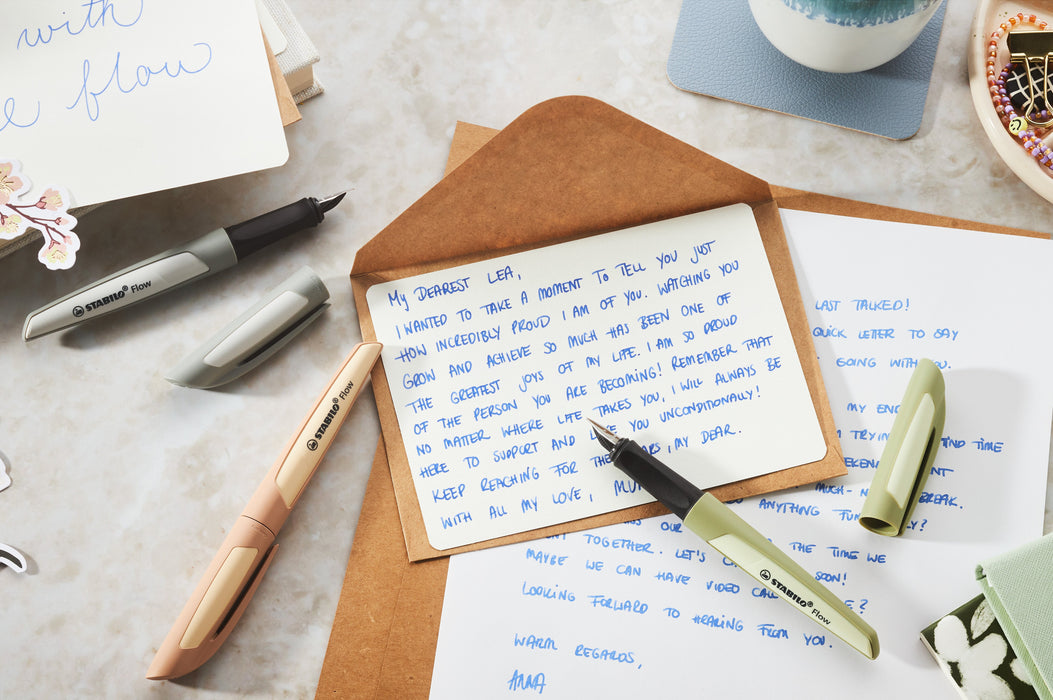 with
e flow
STABILO® Flow
STABILO® Flow
My DEAREST LEA,
I WANTED TO TAKE A MOMENT TO TELL YOU JUST
HOW INCREDIBLY PROUD I AM OF YOU. WATCHING YOU
GROW AND ACHIEVE SO MUCH HAS BEEN ONE OF
THE GREATEST JOYS OF MY LIFE. I AM SO PROUD
OF THE PERSON YOU ARE BECOMING! REMEMBER THAT
NO MATTER WHERE LIFE TAKES YOU, I WILL ALWAYS BE
HERE TO SUPPORT AND YOU UNCONDITIONALLY!
KEEP REACHING FOR THE ARS, MY DEAR.
WITH ALL MY LOVE, MU
LAST TALKED!
QUICK LETTER TO SAY
GOING WITH YOU.
MY
TRYIN FIND TIME
MUCH- BREAK.
ANYTHING FUN Y?
OUR THE TIME WE
TOGETHER. LET'S SOON!
MAYBE WE CAN HAVE VIDEO CAL E?
LOOKING FORWARD TO HEARING FROM YOU.
WARM REGARDS,
ANNA
STABILO® Flow